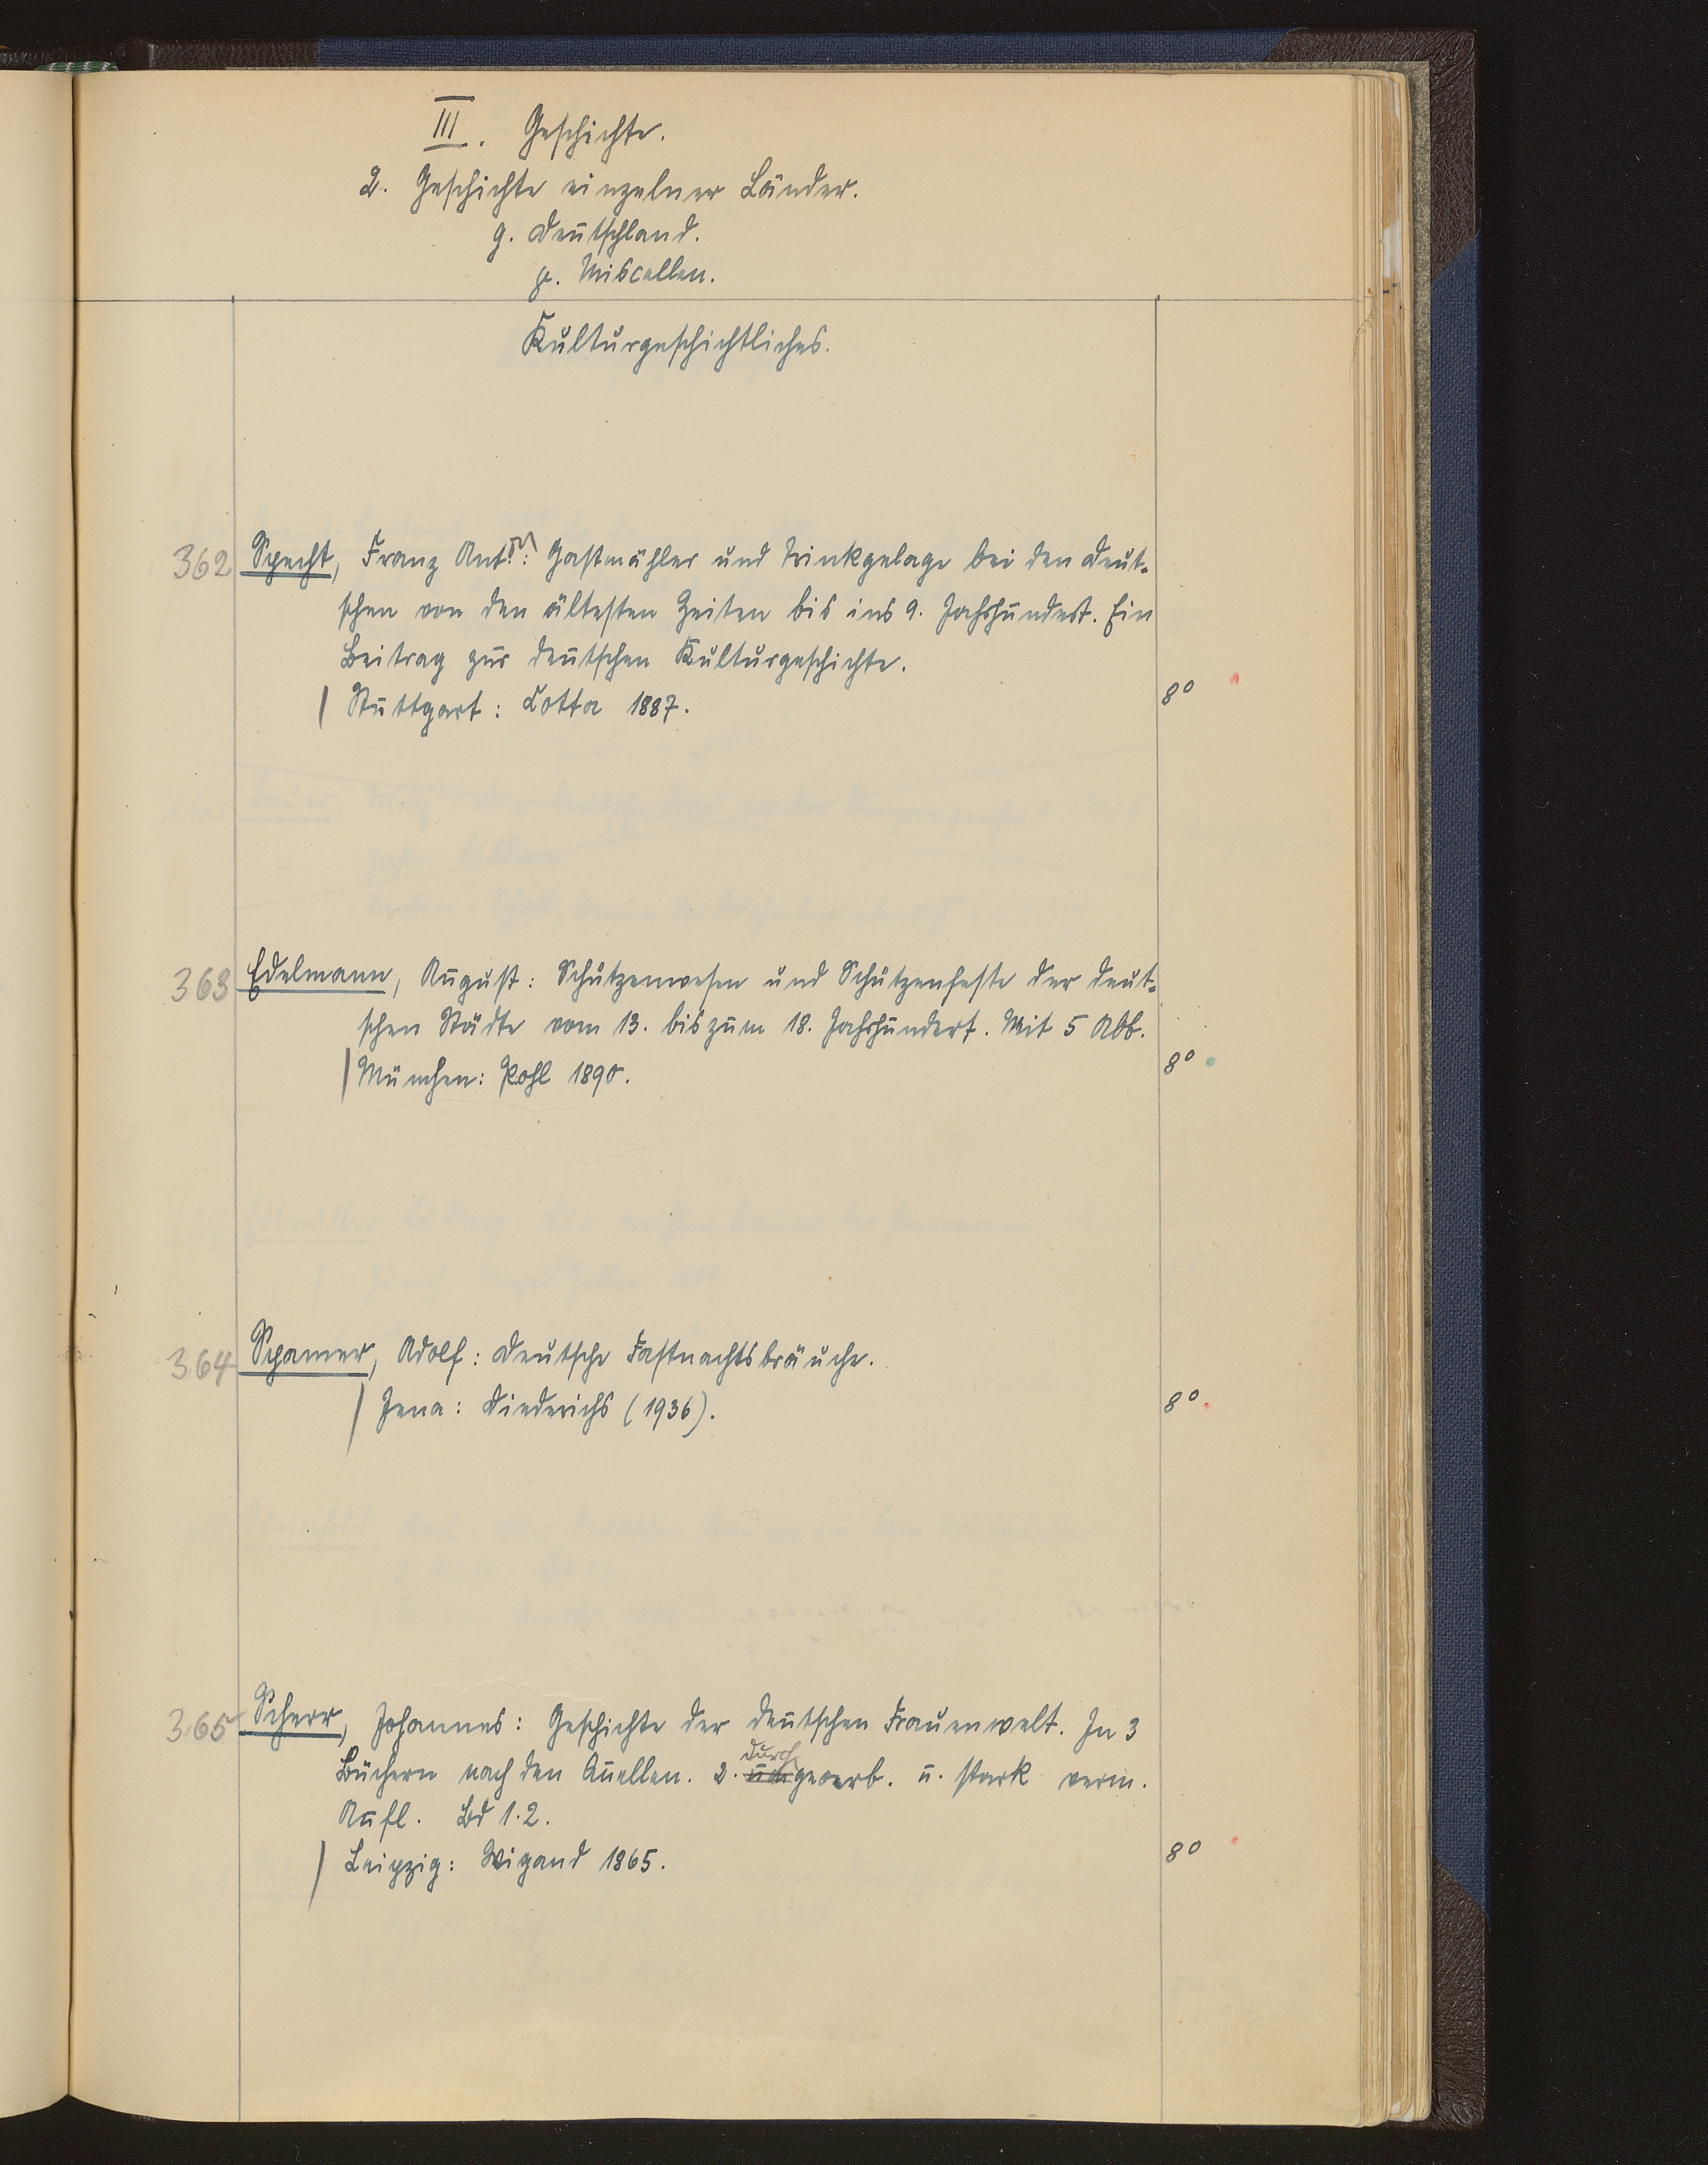 III. Geschichte.
2. Geschichte einzelner Länder.
g. Deutschland.
p. Miscellen.
Kulturgeschichtliches.
362 Specht, Franz Anton: Gastmähler und Trinkgelage bei den Deut-
schen von den ältesten Zeiten bis ins 9. Jahrhundert. Ein
Beitrag zur deutschen Kulturgeschichte.
Stuttgart: Cotta 1887. 8°
363 Edelmann, August: Schützenwesen und Schützenfeste der deut-
schen Städte vom 13. bis zum 18. Jahrhundert. Mit 5 Abb.
München: Pohl 1890. 8°
364 Spamer, Adolf: Deutsche Fastnachtsbräuche.
Jena: Diederichs (1936). 8°
365 Scherr, Johannes: Geschichte der deutschen Frauenwelt. In 3
Büchern nach den Quellen. 2. durchgearb. u. stark verm.
Aufl. Bd 1.2.
Leipzig: Wigand 1865. 8°